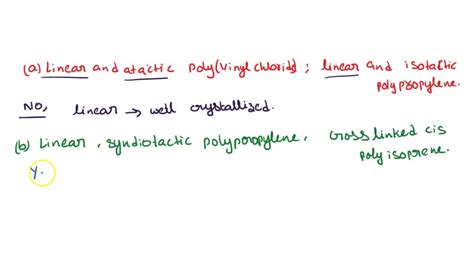 (a) Linear and atactic poly(vinyl chloride) ; linear and isotactic
polypropylene.
No, linear → well crystallised.
(b) Linear, syndiotactic polypropylene, Cross linked cis
poly isoprene.
Y.